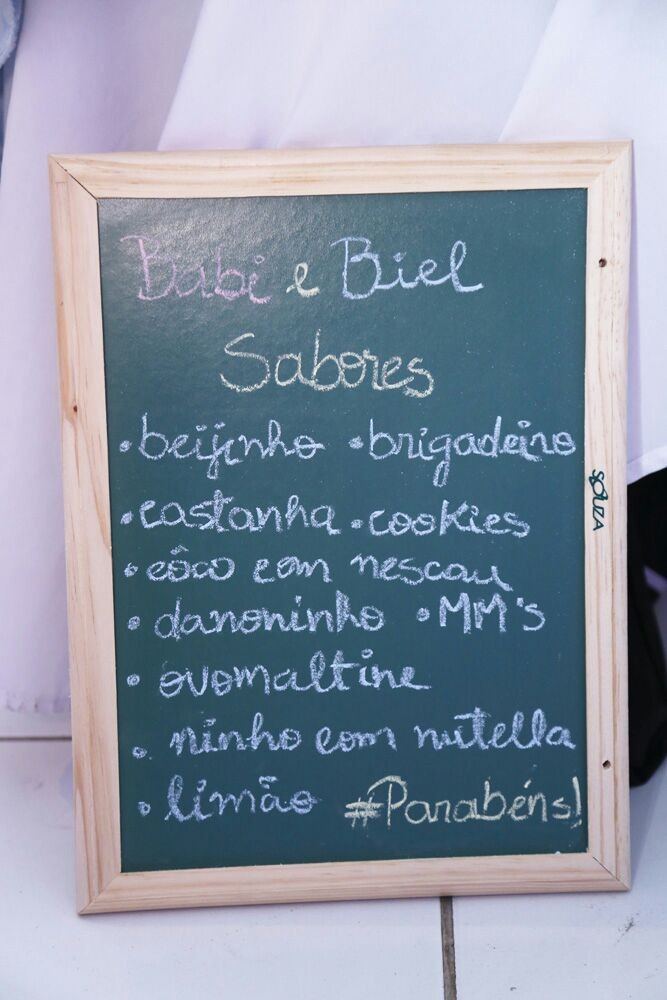 Babi e Biel
Sabores
•beijinho •brigadeiro
•castanha •cookies
•côco com nescau
•danoninho •MM's
•ovomaltine
•ninho com nutella
•limão #Parabéns!
SOUZA